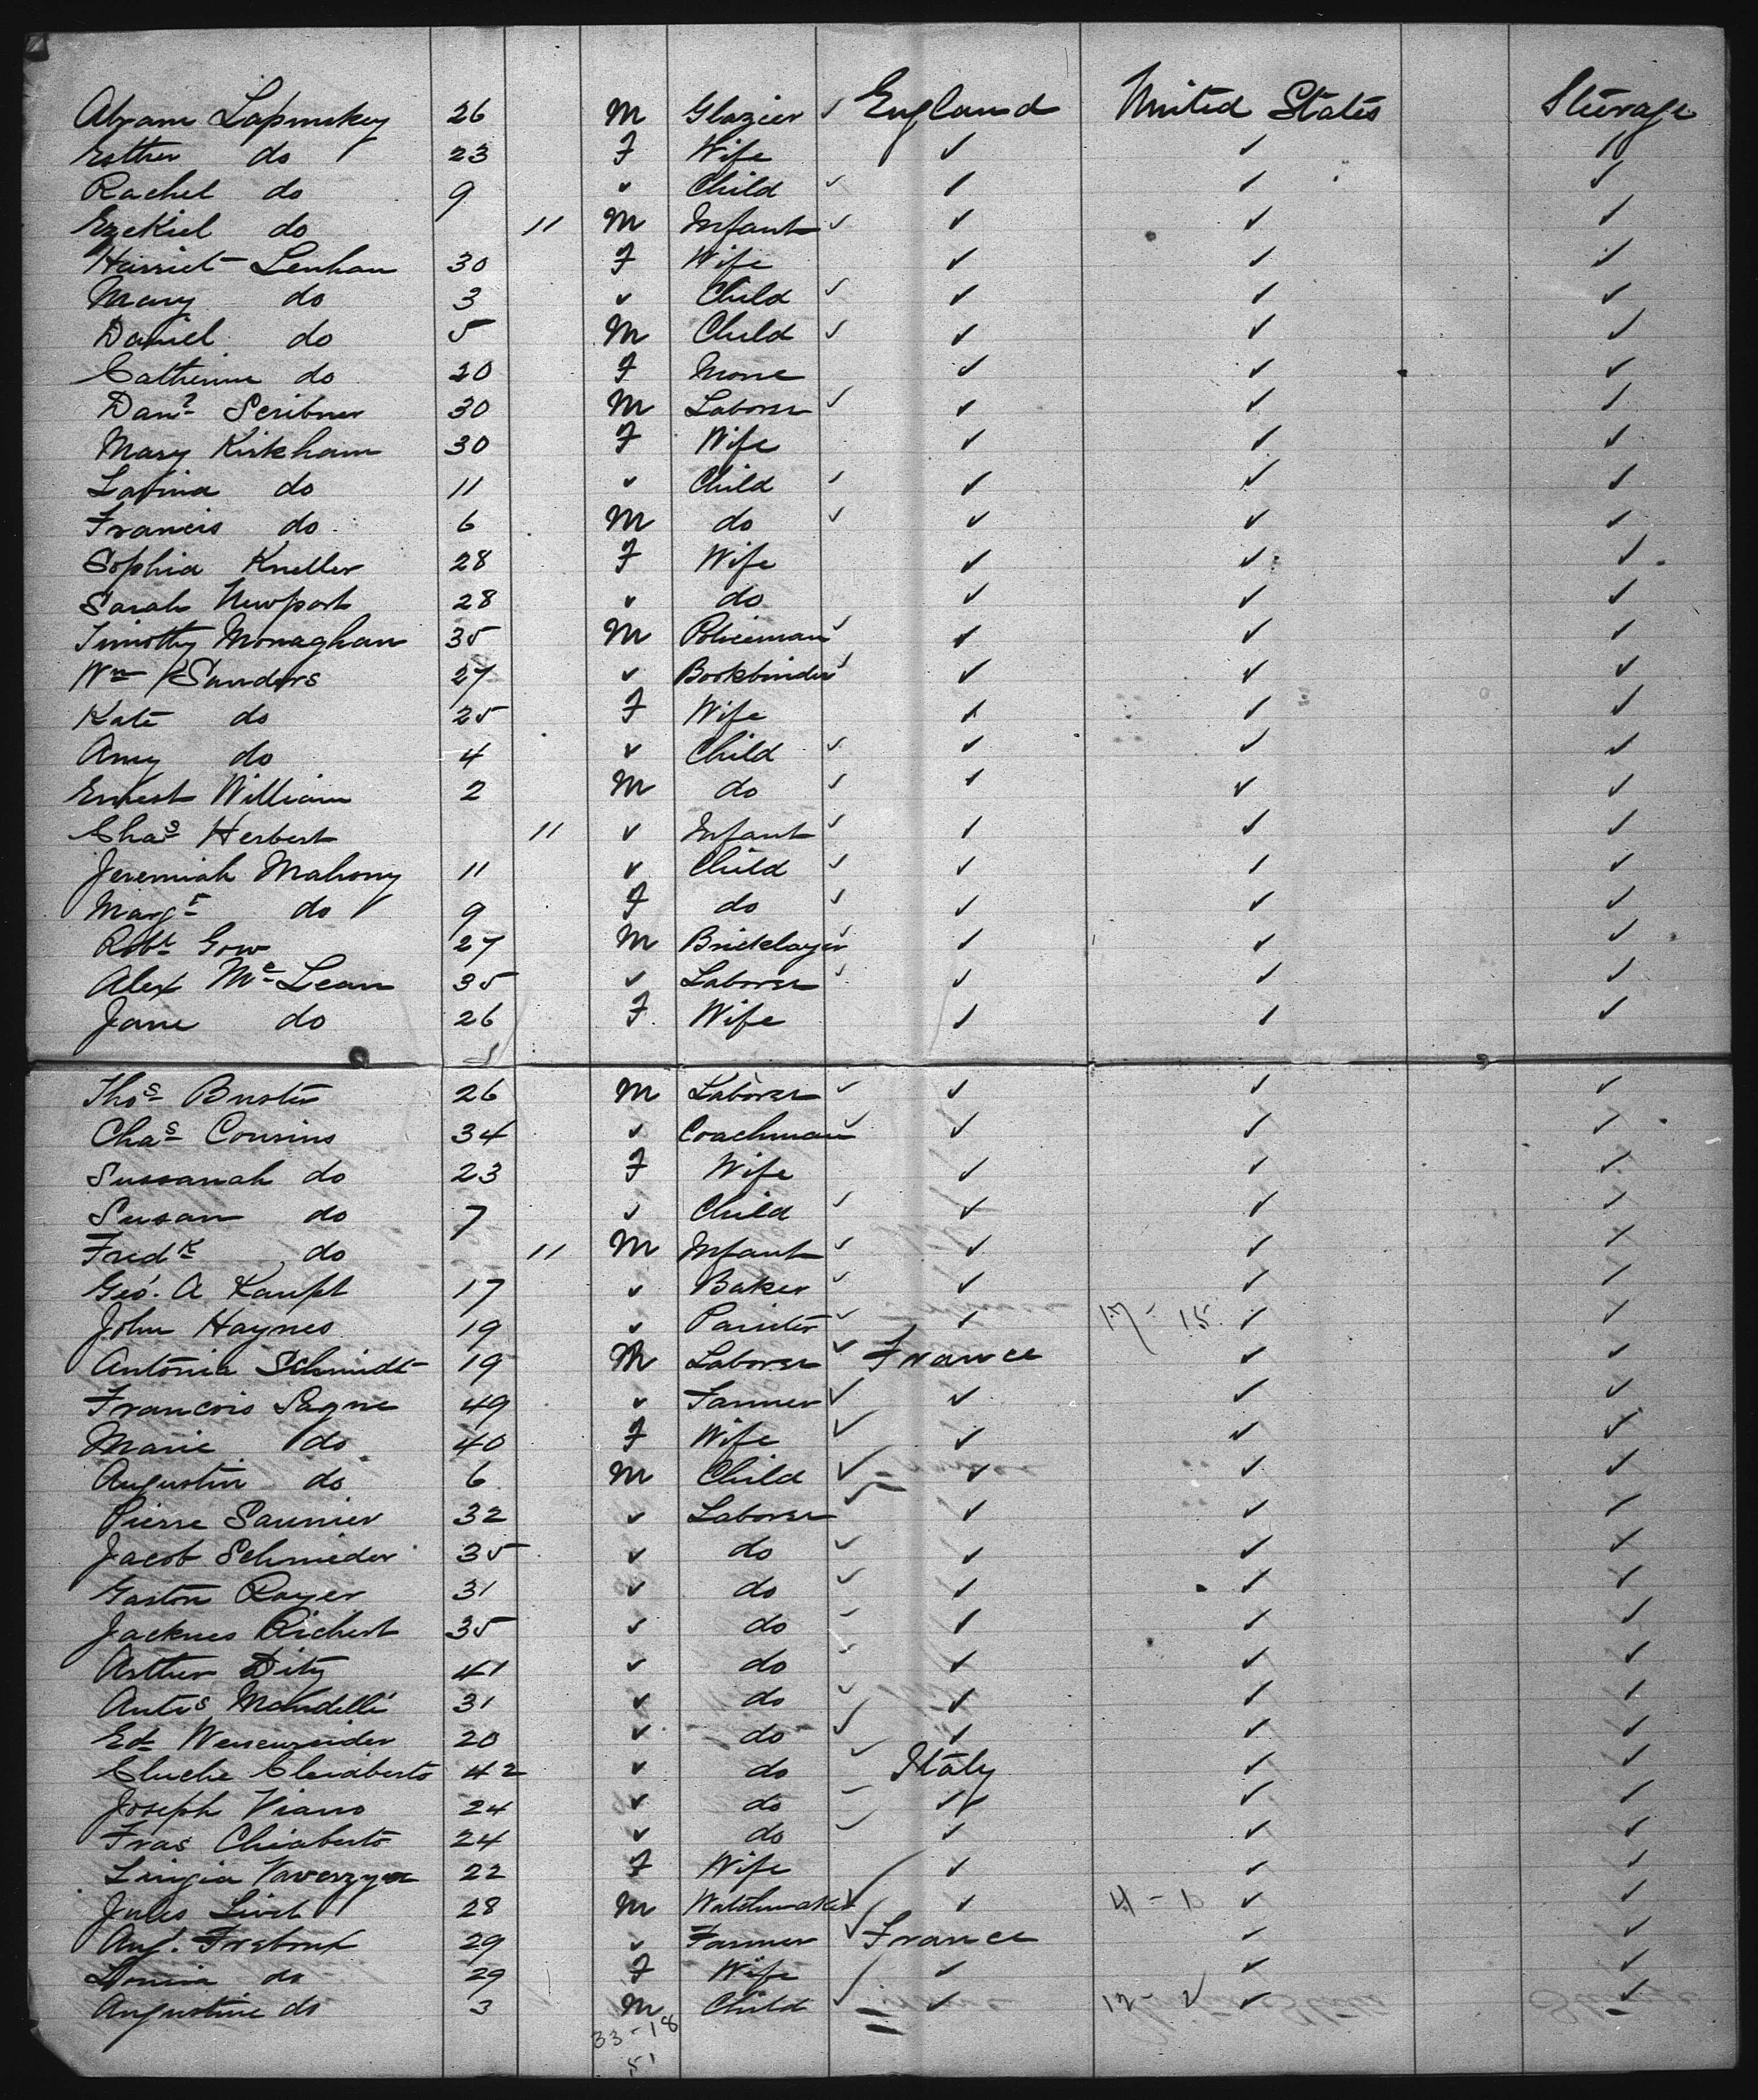 Abram Lapinskey 26 M Glazier ✓ England United States Steerage
Esther do 23 F Wife ✓ ✓ "
Rachel do 9 ✓ Child ✓ ✓ ✓ ✓
Ezekiel do 11 M Infant ✓ ✓ ✓ ✓
Harriet Lenhan 30 F Wife ✓ ✓ ✓
Mary do 3 ✓ Child ✓ ✓ ✓ ✓
Daniel do 5 M Child ✓ ✓ ✓ ✓
Catherine do 20 F None ✓ ✓ ✓
Danl Scribner 30 M Laborer ✓ ✓ ✓ ✓
Mary Kirkham 30 F Wife ✓ ✓ ✓
Lavina do 11 ✓ Child ✓ ✓ ✓ ✓
Francis do 6 M do ✓ ✓ ✓ ✓
Sophia Kneller 28 F Wife ✓ ✓ ✓
Sarah Newport 28 ✓ do ✓ ✓ ✓
Timothy Monaghan 35 M Policeman ✓ ✓ ✓ ✓
Wm Sanders 27 ✓ Bookbinder ✓ ✓ ✓ ✓
Kate do 25 F Wife ✓ ✓ ✓
Amy do 4 ✓ Child ✓ ✓ ✓ ✓
Ernest William 2 M do ✓ ✓ ✓ ✓
Chas Herbert 11 ✓ Infant ✓ ✓ ✓ ✓
Jeremiah Mahony 11 ✓ Child ✓ ✓ ✓ ✓
Margt do 9 F do ✓ ✓ ✓ ✓
Robt Gow 27 M Bricklayer ✓ ✓ ✓ ✓
Alex McLean 35 ✓ Laborer ✓ ✓ ✓ ✓
Jane do 26 F Wife ✓ ✓ ✓
Thos Buster 26 M Laborer ✓ ✓ ✓ ✓
Chas Cousins 34 ✓ Coachman ✓ ✓ ✓ ✓
Sussanah do 23 F Wife ✓ ✓ ✓
Susan do 7 ✓ Child ✓ ✓ ✓ ✓
Fredk do 11 M Infant ✓ ✓ ✓ ✓
Geo. A Kaupt 17 ✓ Baker ✓ ✓ ✓ ✓
John Haynes 19 ✓ Painter ✓ ✓ 17 - 15 ✓ ✓
Antonia Schmidt 19 M Laborer ✓ France ✓ ✓
Francois Sagne 49 ✓ Farmer ✓ ✓ ✓ ✓
Marie do 40 F Wife ✓ ✓ ✓ ✓
Augustin do 6 M Child ✓ ✓ ✓ ✓
Pierre Saunier 32 ✓ Laborer ✓ ✓ ✓ ✓
Jacob Schmieder 35 ✓ do ✓ ✓ ✓ ✓
Gaston Rayer 31 ✓ do ✓ ✓ ✓ ✓
Jacknes Richert 35 ✓ do ✓ ✓ ✓ ✓
Arthur Dity 41 ✓ do ✓ ✓ ✓ ✓
Antis Mandelli 31 ✓ do ✓ ✓ ✓ ✓
Ed 20 ✓ do ✓ ✓ ✓ ✓
42 ✓ do ✓ Italy ✓ ✓
Joseph Viano 24 ✓ do ✓ ✓ ✓ ✓
Fras Chiaberto 24 ✓ do ✓ ✓ ✓ ✓
22 F Wife ✓ ✓ ✓
Jules Livet 28 M Watchmaker ✓ ✓ 4 - 1 ✓ ✓
Aug. 29 ✓ Farmer ✓ France ✓ ✓
Louisa do 29 F Wife ✓ ✓ ✓
Augustine do 3 M Child ✓ ✓ 12 - 2 ✓ ✓
33 - 18
51